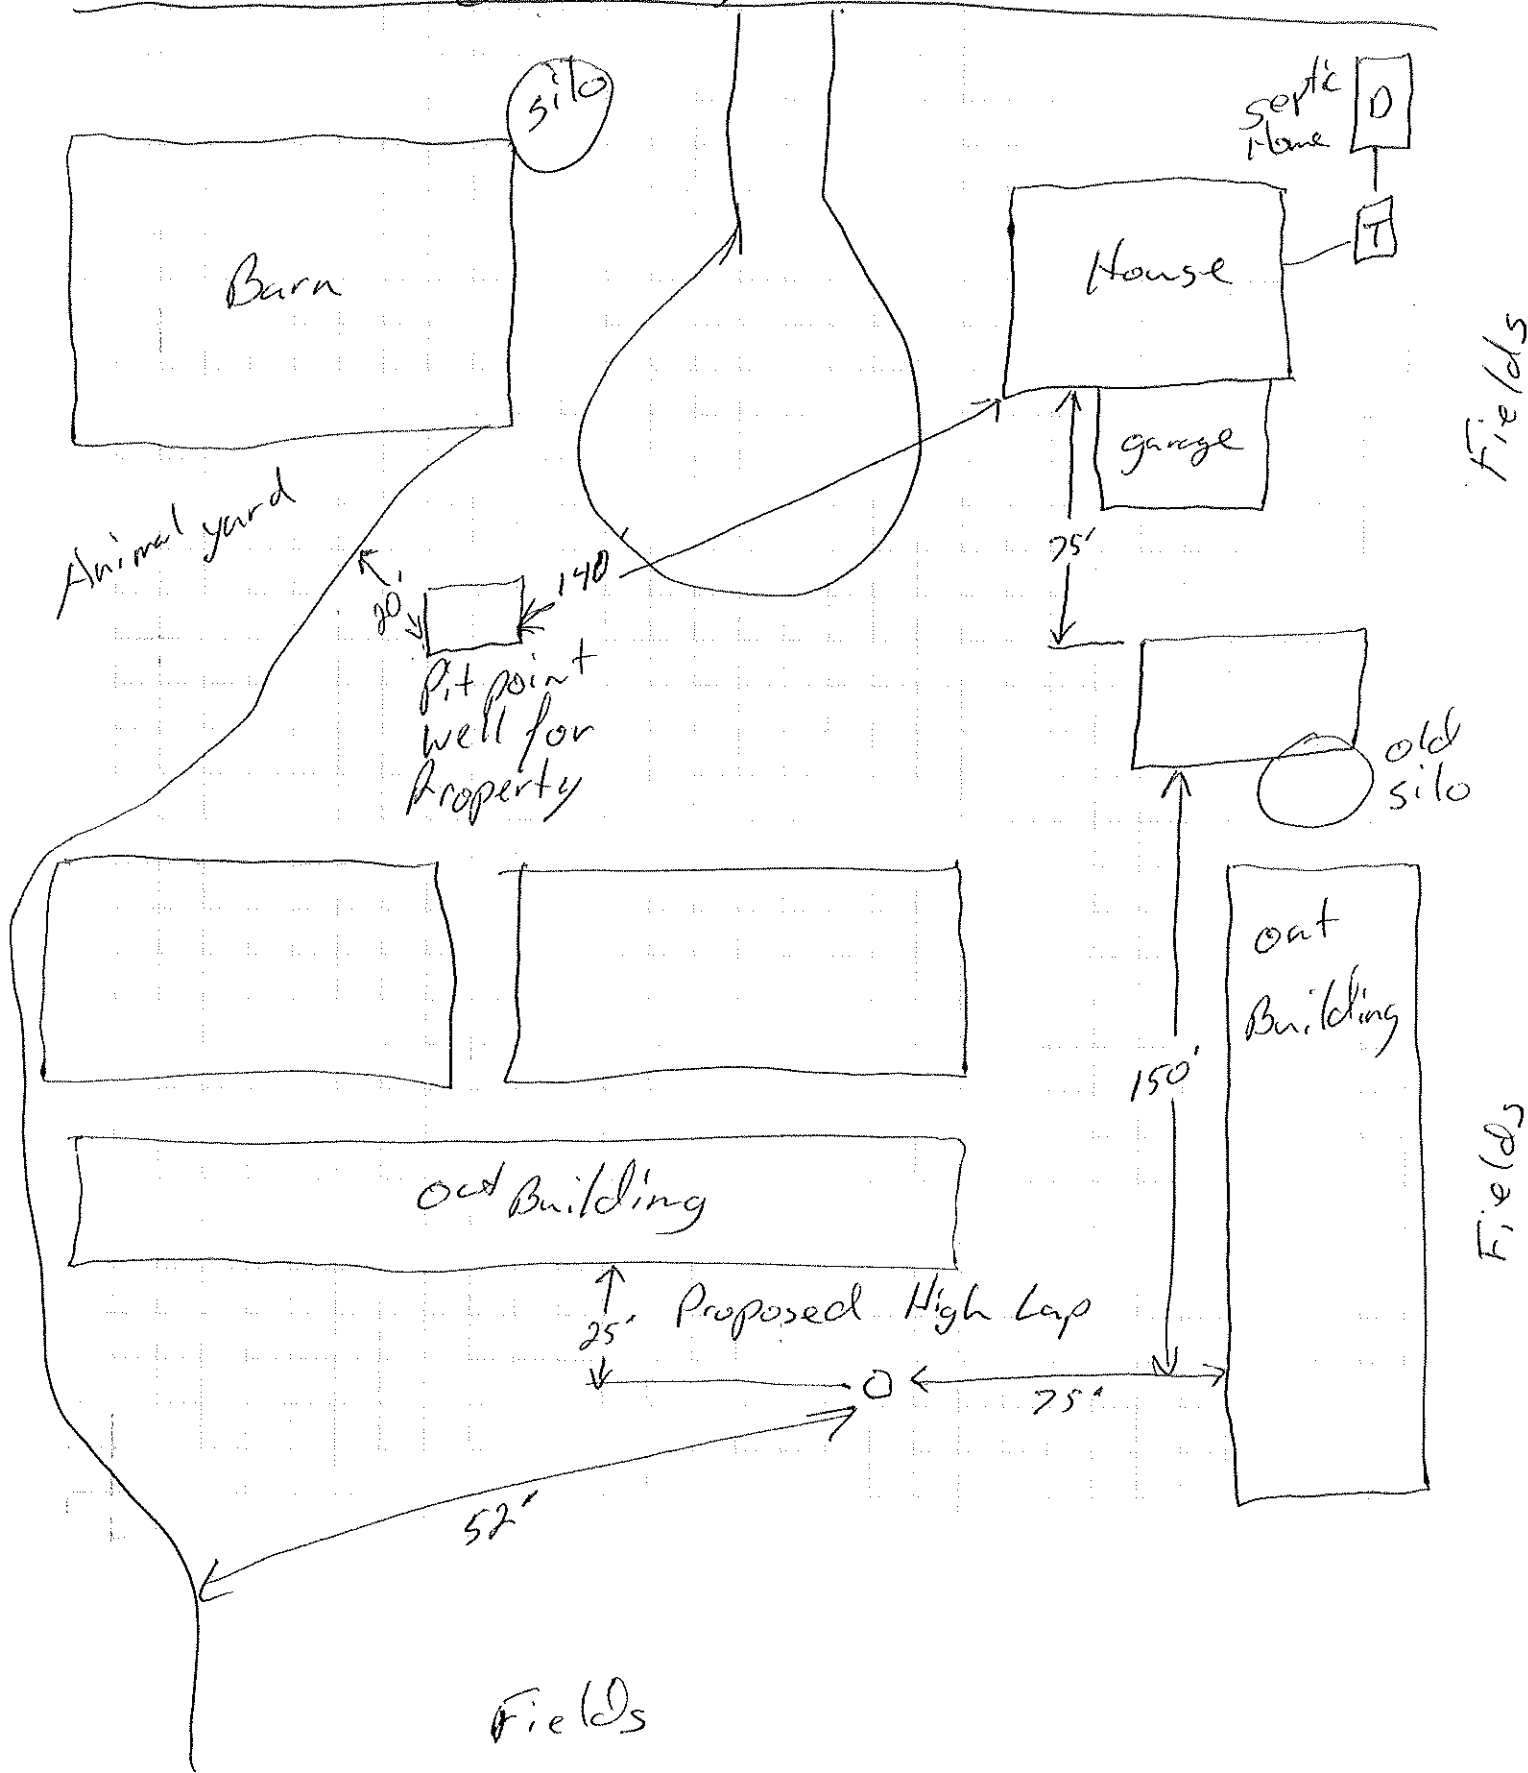 silo
septic
Home
D
T
Barn
House
Fields
garage
Animal yard
75'
20'
140
Pit point
well for
Property
old
silo
out
Building
150'
Fields
out Building
25'
Proposed High Cap
75'
52'
Fields